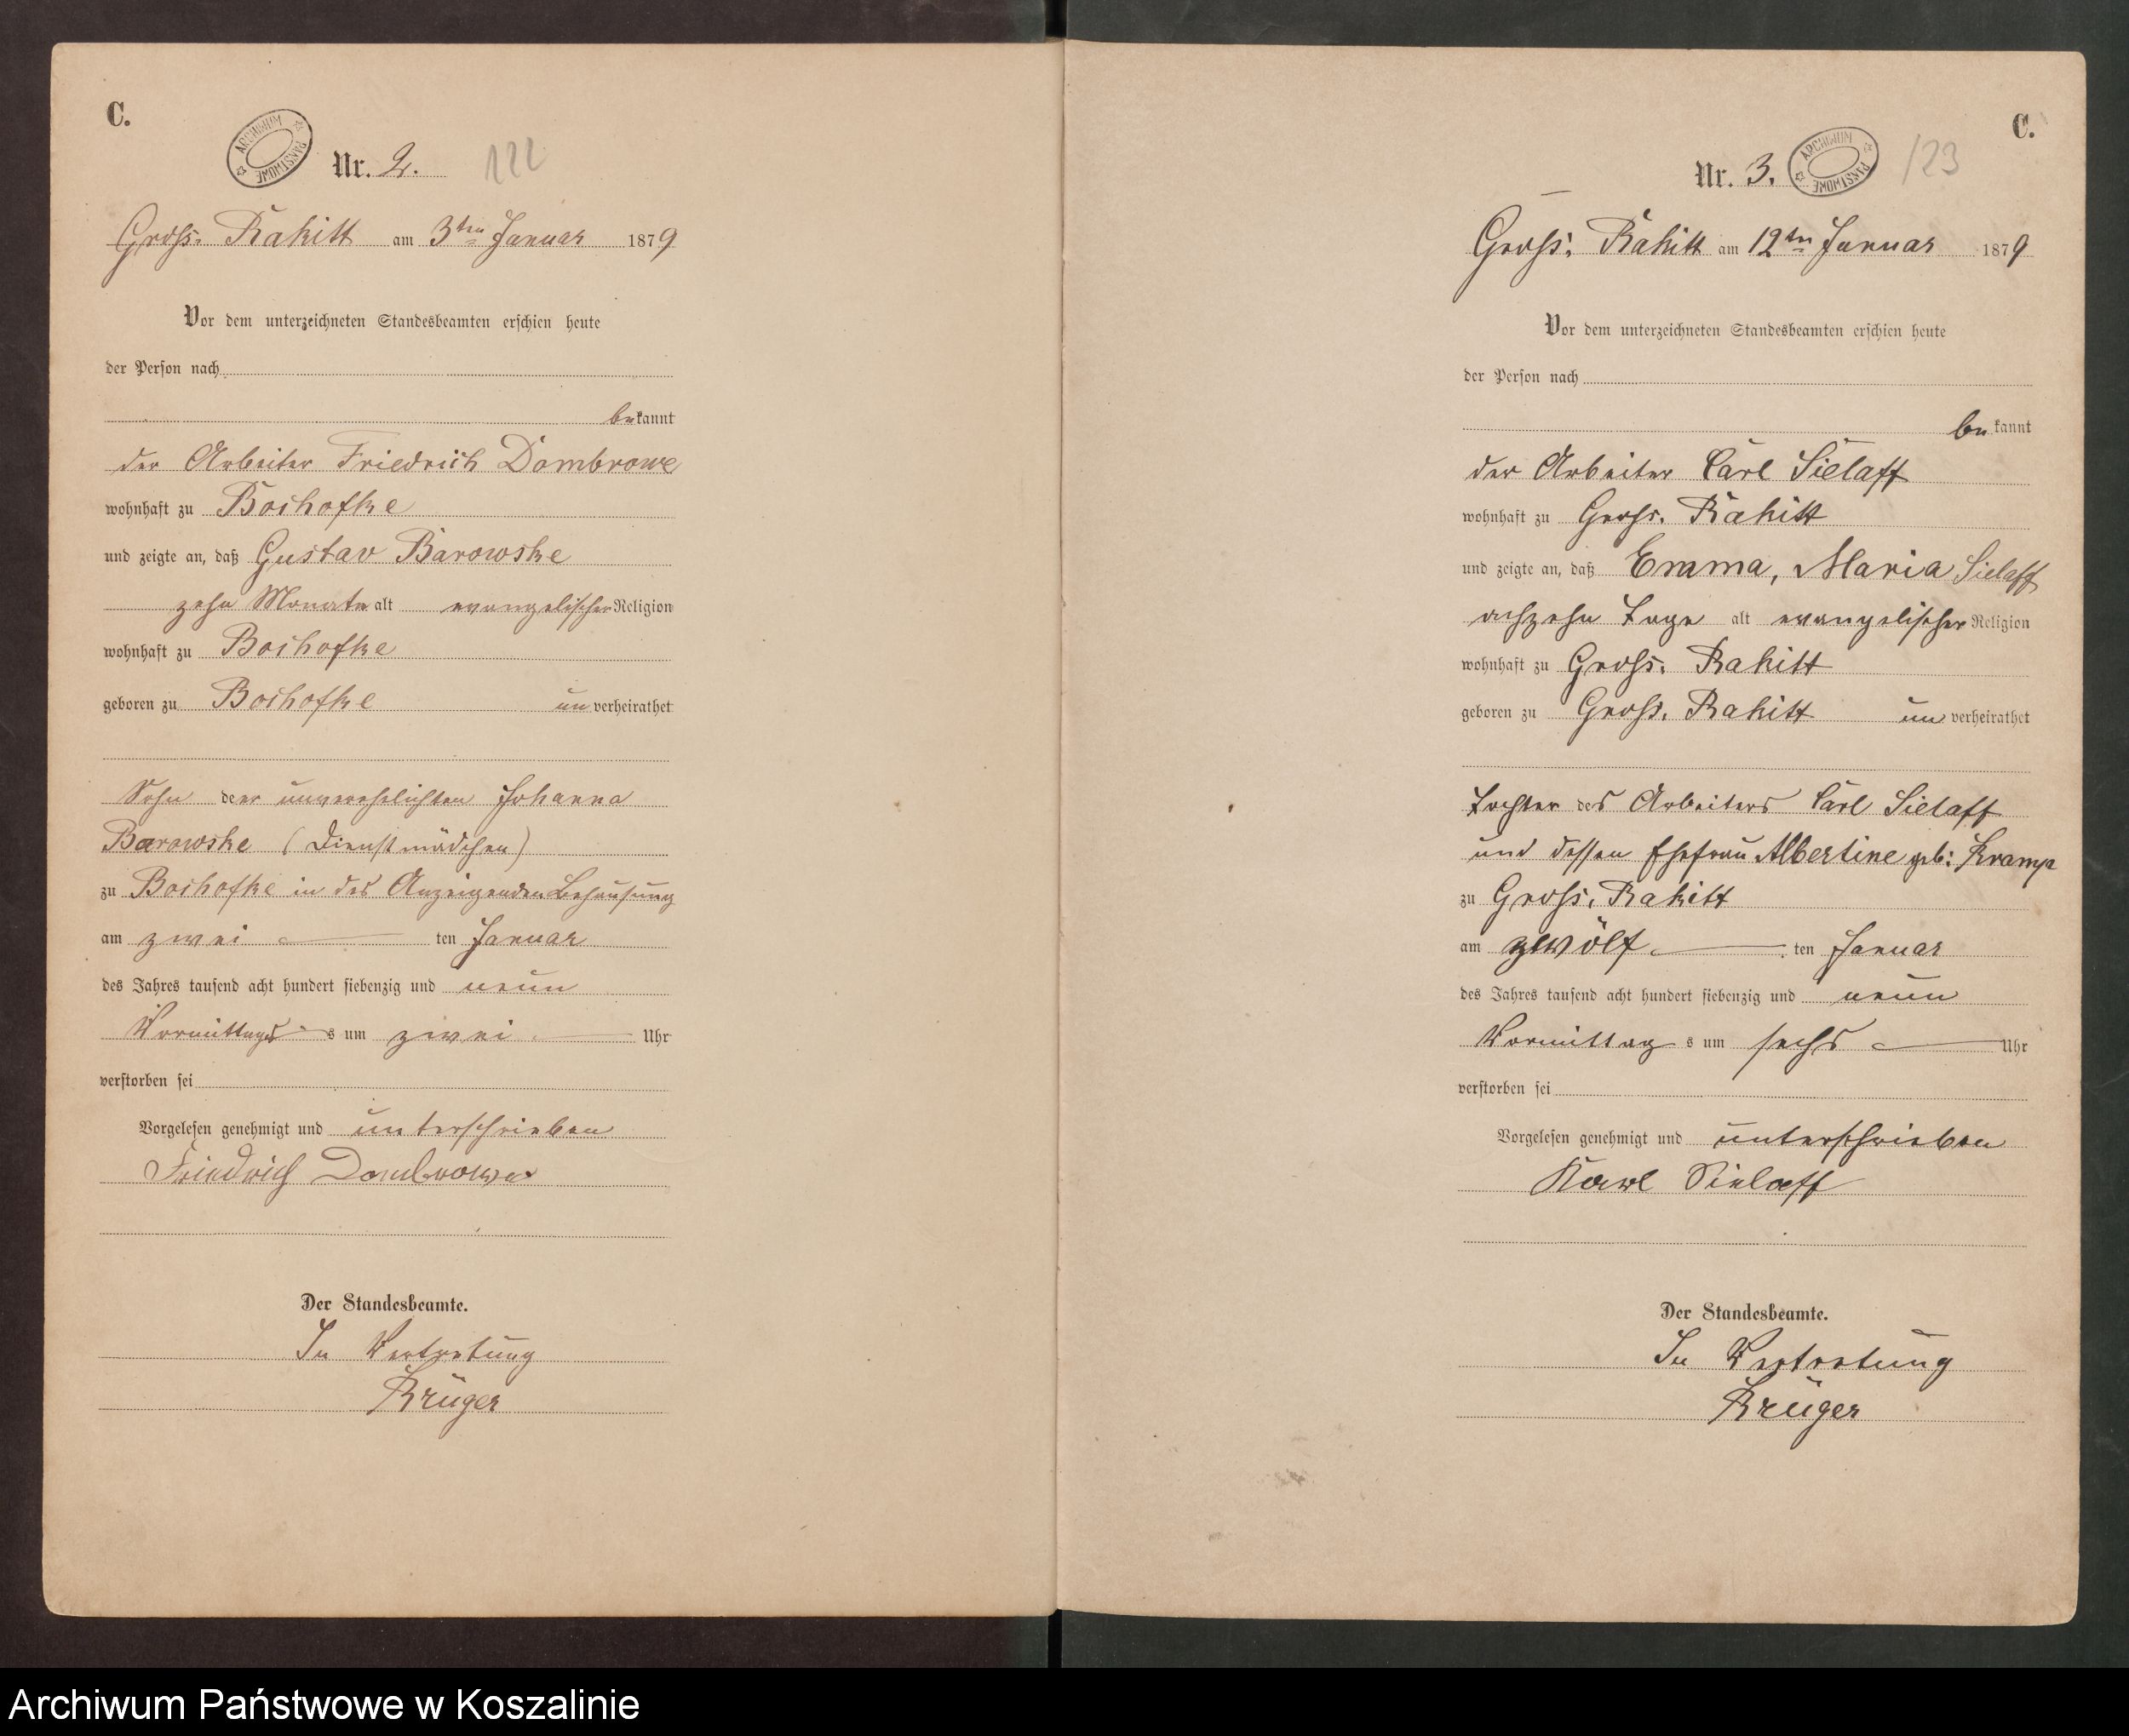 C.
ARCHIWUM PAŃSTWOWE
Nr. 2.
122
Gross. Rakitt am 3ten Januar 1879
Vor dem unterzeichneten Standesbeamten erschien heute
der Person nach
bekannt
der Arbeiter Friedrich Dombrowe
wohnhaft zu Bochofke
und zeigte an, daß Gustav Barowske
zehn Monate alt evangelischer Religion
wohnhaft zu Bochofke
geboren zu Bochofke unverheirathet
Sohn der unverehelichten Johanna
Barowske (Dienstmädchen)
zu Bochofke in des Anzeigenden Behausung
am zwei ten Januar
des Jahres tausend acht hundert siebenzig und neun
Vormittags s um zwei Uhr
verstorben sei
Vorgelesen genehmigt und unterschrieben
Friedrich Dombrowe
Der Standesbeamte.
In Vertretung
Krüger
C.
Nr. 3.
ARCHIWUM PAŃSTWOWE
123
Gross. Rakitt am 12ten Januar 1879
Vor dem unterzeichneten Standesbeamten erschien heute
der Person nach
bekannt
der Arbeiter Carl Sielaff
wohnhaft zu Gross. Rakitt
und zeigte an, daß Emma, Maria Sielaff
achzehn Tage alt evangelischer Religion
wohnhaft zu Gross. Rakitt
geboren zu Gross. Rakitt unverheirathet
Tochter des Arbeiters Carl Sielaff
und dessen Ehefrau Albertine geb: Kramp
zu Gross. Rakitt
am zwölf ten Januar
des Jahres tausend acht hundert siebenzig und neun
Vormittag s um sechs Uhr
verstorben sei
Vorgelesen genehmigt und unterschrieben
Karl Sielaff
Der Standesbeamte.
In Vertretung
Krüger
Archiwum Państwowe w Koszalinie